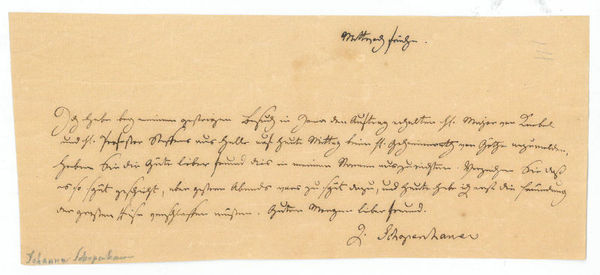 Mittwoch früh.
Ich habe bey meinem gestrigen Besuch in Jena den Auftrag erhalten H. Major von Knebel
und H. Professor Steffens aus Halle auf heute Mittag beim H. Geheimerath von Göthe anzumelden,
haben Sie die Güte lieber Freund dies in meinem Namen auszurichten. Verzeihen Sie daß
es so spät geschieht, aber gestern Abends war es zu spät dazu, und heute habe ich erst die
der großen Hitze verschlafen müssen. Guten Morgen lieber Freund.
J. Schopenhauer
Johanna Schopenhauer